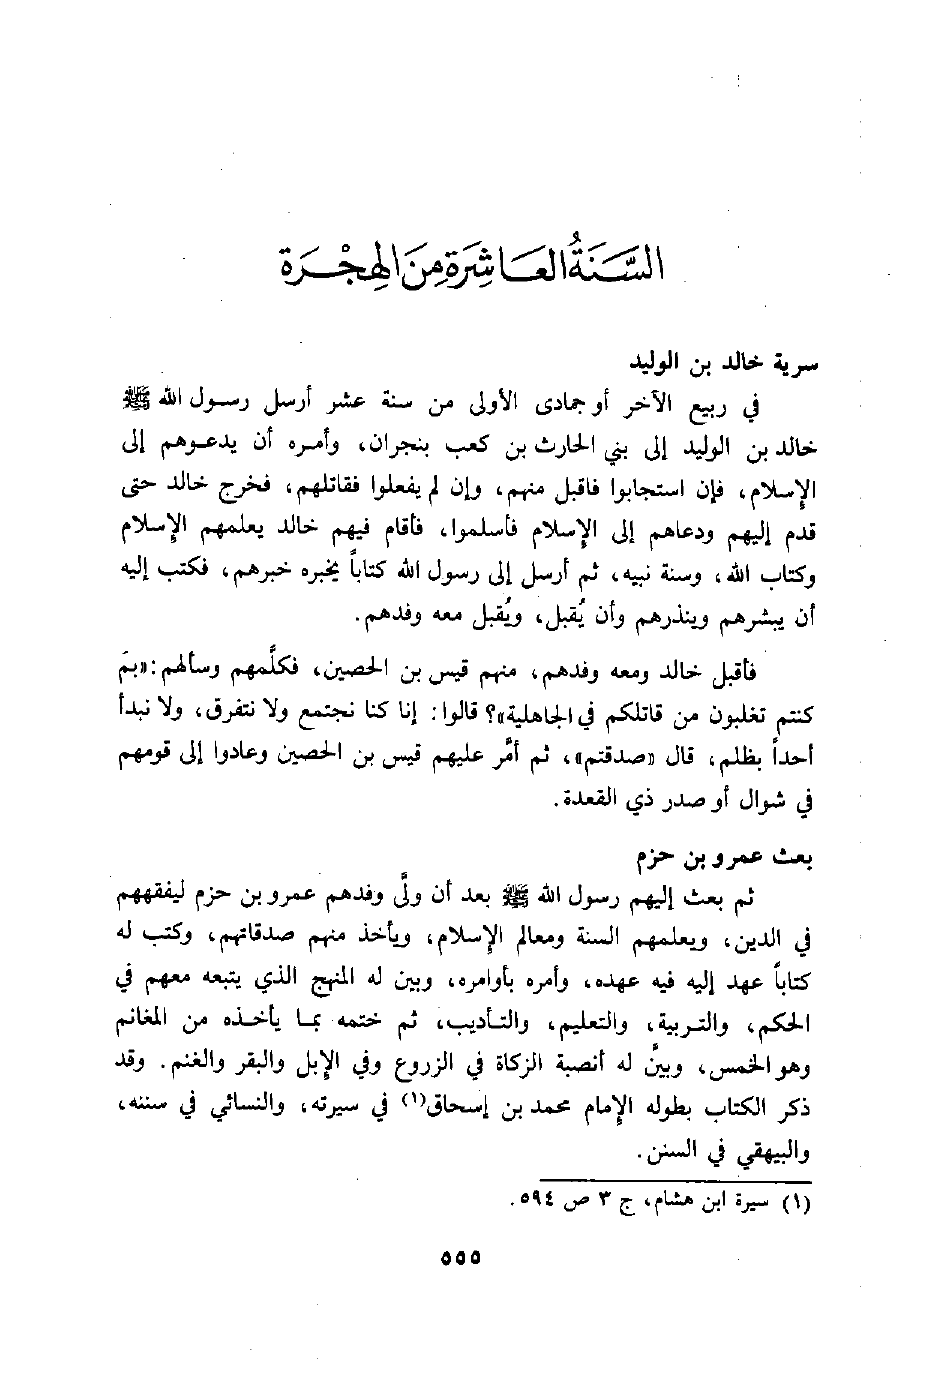 السَّنَةُ العَاشِرَة مِنَ الهِجْرَة
سرية خالد بن الوليد
في ربيع الآخر أو جمادى الأولى من سنة عشر أرسل رسول الله ﷺ
خالد بن الوليد إلى بني الحارث بن كعب بنجران، وأمره أن يدعوهم إلى
الإسلام، فإن استجابوا فاقبل منهم، وإن لم يفعلوا فقاتلهم، فخرج خالد حتى
قدم إليهم ودعاهم إلى الإسلام فأسلموا، فأقام فيهم خالد يعلمهم الإسلام
وكتاب الله، وسنة نبيه، ثم أرسل إلى رسول الله كتاباً يخبره خبرهم، فكتب إليه
أن يبشرهم وينذرهم وأن يُقبل، ويُقبل معه وفدهم.
فأقبل خالد ومعه وفدهم، منهم قيس بن الحصين، فكلَّمهم وسألهم: «بمَ
كنتم تغلبون من قاتلكم في الجاهلية»؟ قالوا: إنا كنا نجتمع ولا نتفرق، ولا نبدأ
أحداً بظلم، قال «صدقتم»، ثم أمَّر عليهم قيس بن الحصين وعادوا إلى قومهم
في شوال أو صدر ذي القعدة.
بعث عمرو بن حزم
ثم بعث إليهم رسول الله ﷺ بعد أن ولَّى وفدهم عمرو بن حزم ليفقههم
في الدين، ويعلمهم السنة ومعالم الإسلام، ويأخذ منهم صدقاتهم، وكتب له
كتاباً عهد إليه فيه عهده، وأمره بأوامره، وبين له المنهج الذي يتبعه معهم في
الحكم، والتربية، والتعليم، والتأديب، ثم ختمه بما يأخذه من المغانم
وهو الخمس، وبينَّ له أنصبة الزكاة في الزروع وفي الإبل والبقر والغنم. وقد
ذكر الكتاب بطوله الإمام محمد بن إسحاق(١) في سيرته، والنسائي في سننه،
والبيهقي في السنن.
(١) سيرة ابن هشام، ج ٣ ص ٥٩٤.
٥٥٥